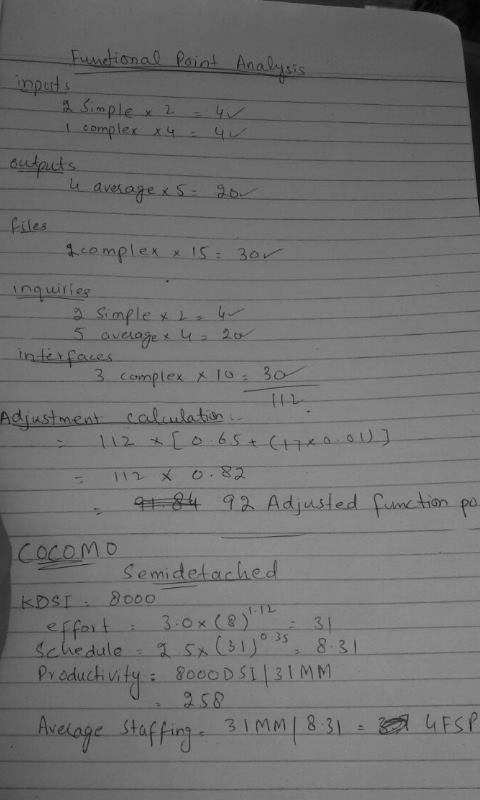 Functional Point Analysis
inputs
2 Simple × 2 = 4✓
1 complex × 4 = 4✓
outputs
4 average × 5 = 20✓
files
2 complex × 15 = 30✓
inquiries
2 Simple × 2 = 4✓
5 average × 4 = 20✓
interfaces
3 complex × 10 = 30
112
Adjustment calculation:-
= 112 × [0.65 + (17 × 0.01)]
= 112 × 0.82
= 91.84 92 Adjusted function po
COCOMO
Semidetached
KDSI = 8000
effort = 3.0 × (8)^1.12 = 31
Schedule = 2.5 × (31)^0.35 = 8.31
Productivity = 8000 DSI / 31 MM
= 258
Average Staffing = 31 MM / 8.31 = 4 FSP